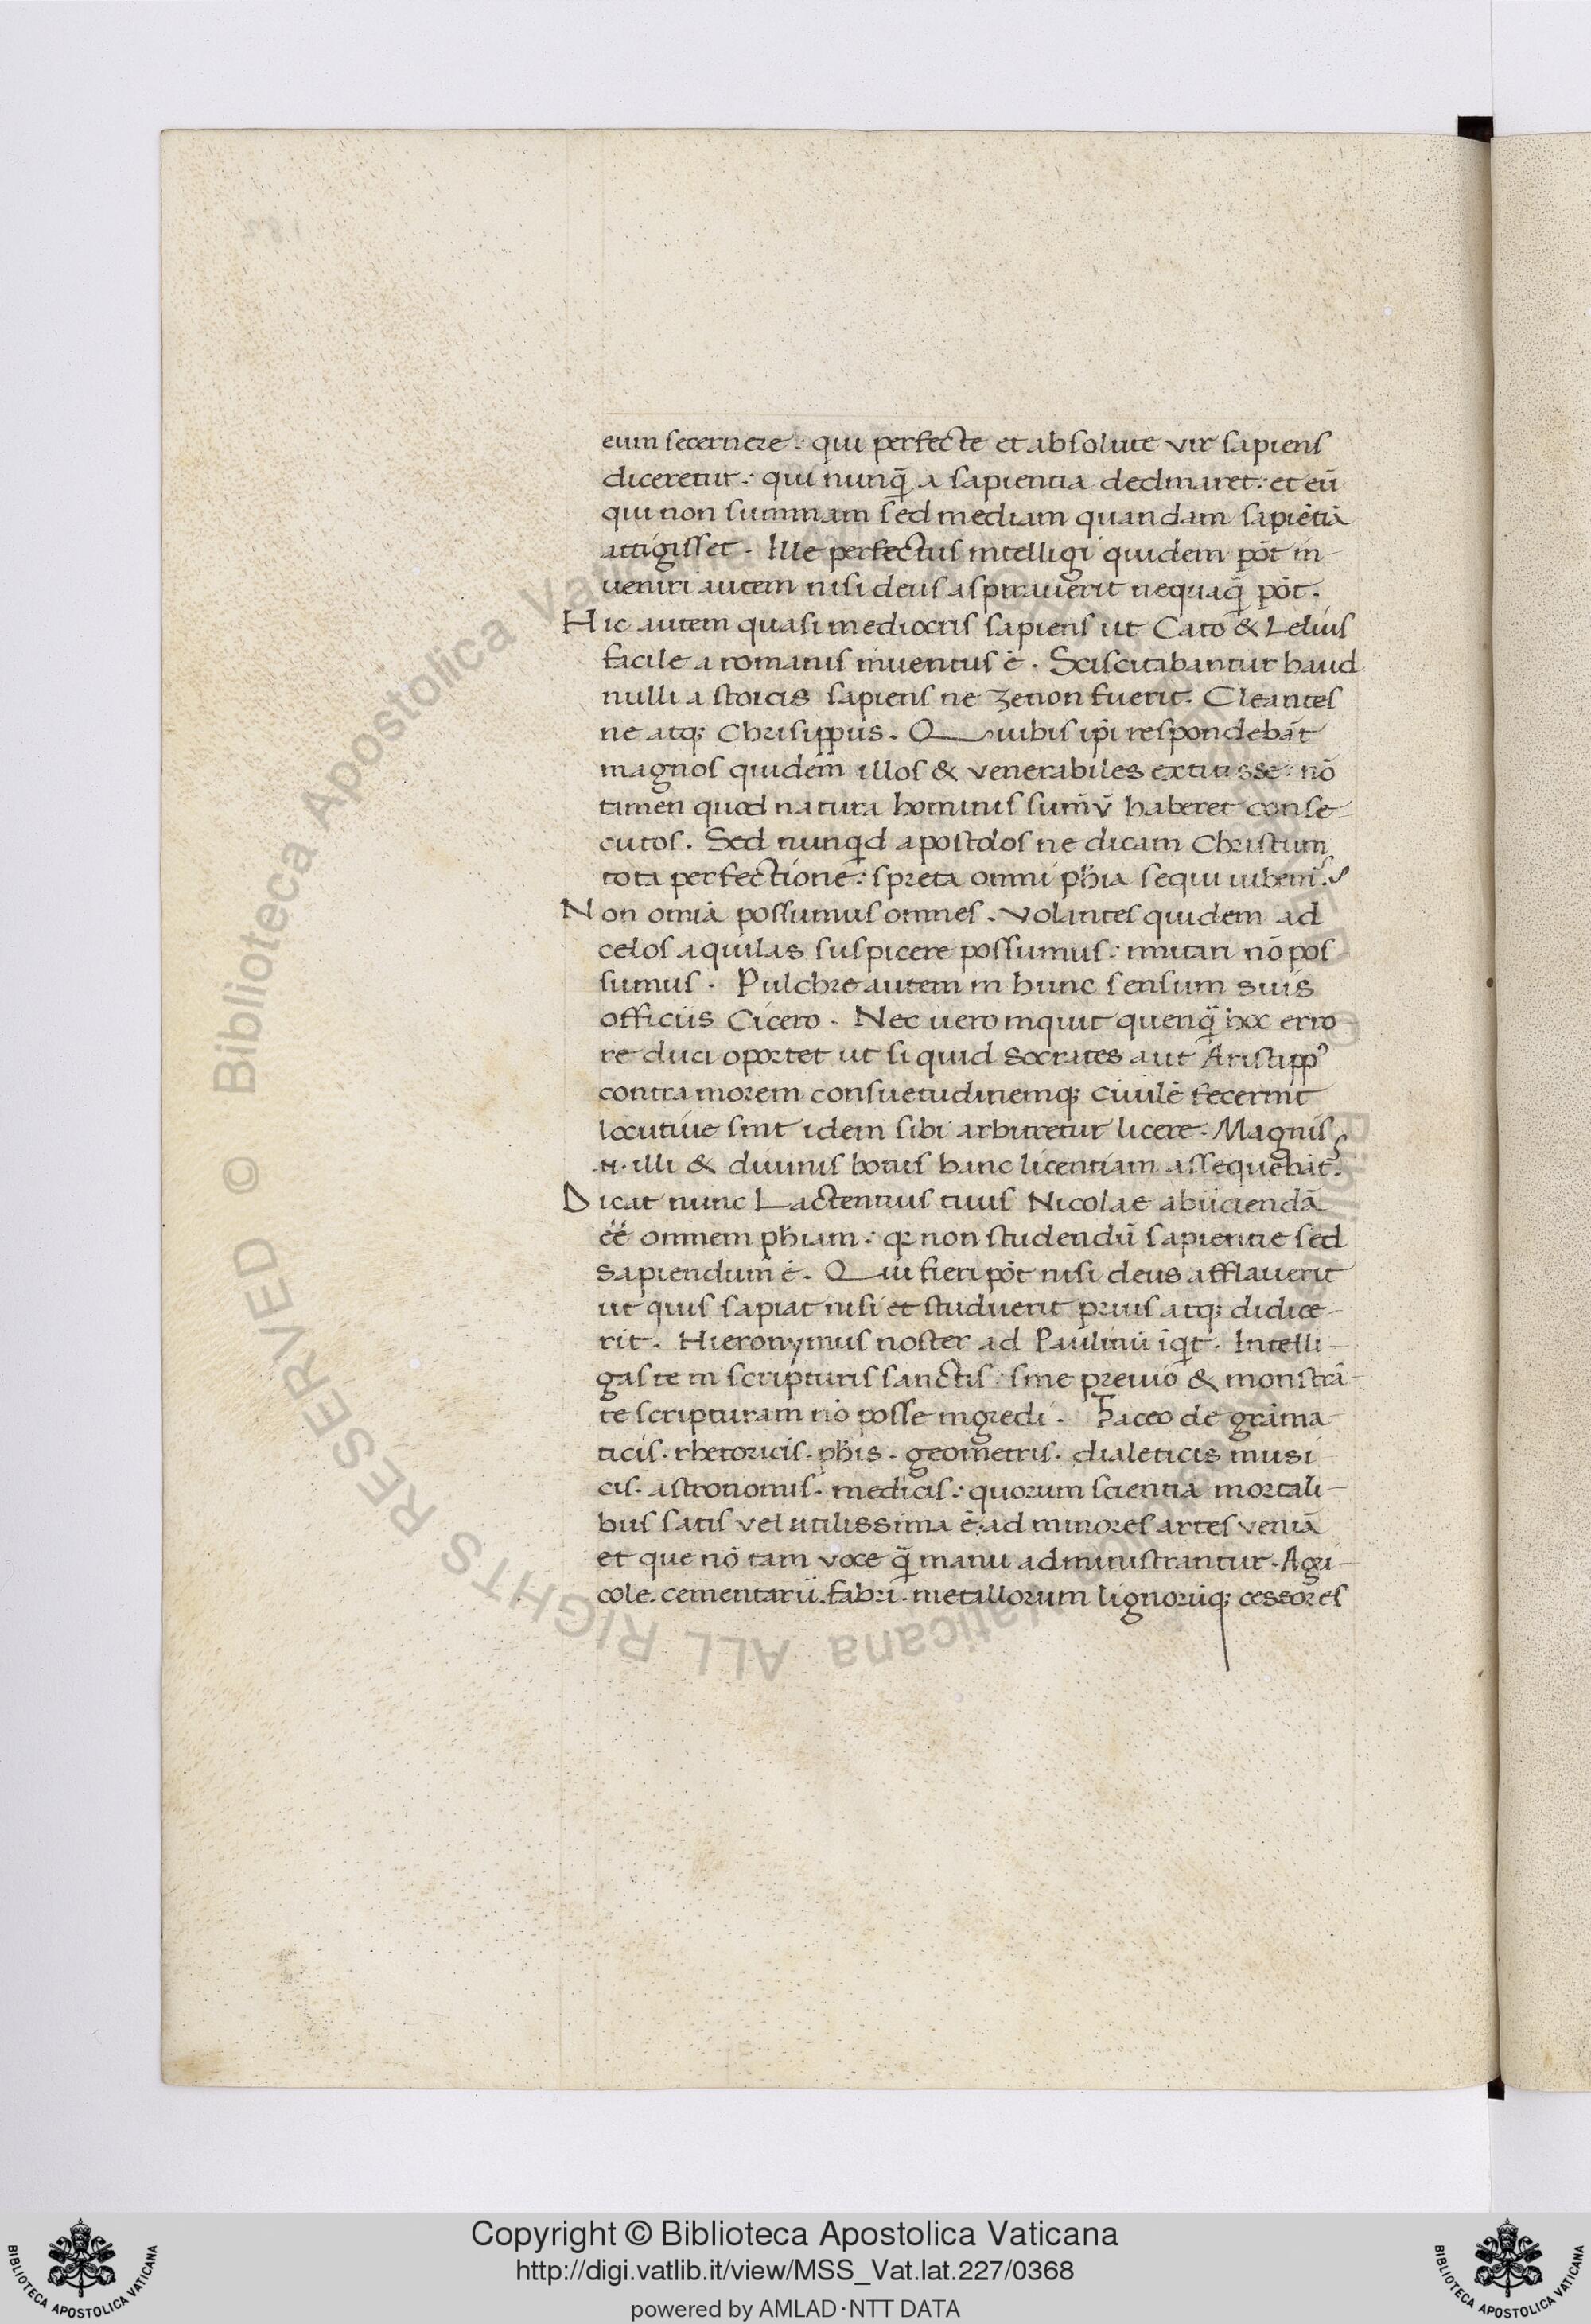 eum secernere: qui perfecte et absolute vir sapiens
diceretur: qui nunq̃ a sapientia declinaret: et eũ
qui non summam sed mediam quandam sapiẽtiã
attigisset. Ille perfectus intelligi quidem põt in-
ueniri autem nisi deus aspirauerit nequaq̃ põt.
Hic autem quasi mediocris sapiens ut Cato & Lelius
facile a romanis inuentus ẽ. Sciscitabantur haud
nulli a stoicis sapiens ne zenon fuerit. Cleantes
ne atq; Chrisippus. Quibus ipi respondebãt
magnos quidem illos & venerabiles extitisse: nõ
tamen quod natura hominis sum̃ũ haberet conse-
cutos. Sed nunqd apostolos ne dicam Christum
tota perfectione: spreta omni phia sequi iubem
Non omia possumus omnes. Volantes quidem ad
celos aquilas suspicere possumus: imitari nõ pos
sumus. Pulchre autem in hunc sensum suis
officiis Cicero. Nec uero inquit quenq̃ hoc erro
re duci oportet ut si quid Socrates aut Aristippꝰ
contra morem consuetudinemq; ciuilẽ fecerint
locutiue sint idem sibi arbitretur licere. Magnis
.n. illi & diuinis bonis hanc licentiam assequebãt.
Dicat nunc Lactentius tuus Nicolae abiiciendã
ẽẽ omnem phiam: q; non studendũ sapientie sed
sapiendum ẽ. Qui fieri põt nisi deus afflauerit
ut quis sapiat nisi et studuerit prius atq; didice-
rit. Hieronymus noster ad Paulinũ iqt. Intelli-
gas te in scripturis sanctis: sine preuio & monstrã-
te scripturam nõ posse ingredi. Taceo de grãma
ticis. rhetoricis. phis. geometris. dialeticis musi
cis. astronomis. medicis: quorum scientia mortali-
bus satis vel utilissima ẽ: ad minores artes veniã
et que nõ tam voce q̃ manu administrantur. Agri-
cole. cementarii. fabri. metallorum lignorũq; cessores
Copyright © Biblioteca Apostolica Vaticana
http://digi.vatlib.it/view/MSS_Vat.lat.227/0368
powered by AMLAD·NTT DATA
BIBLIOTECA APOSTOLICA VATICANA
BIBLIOTECA APOSTOLICA VATICANA
© Biblioteca Apostolica Vaticana ALL RIGHTS RESERVED